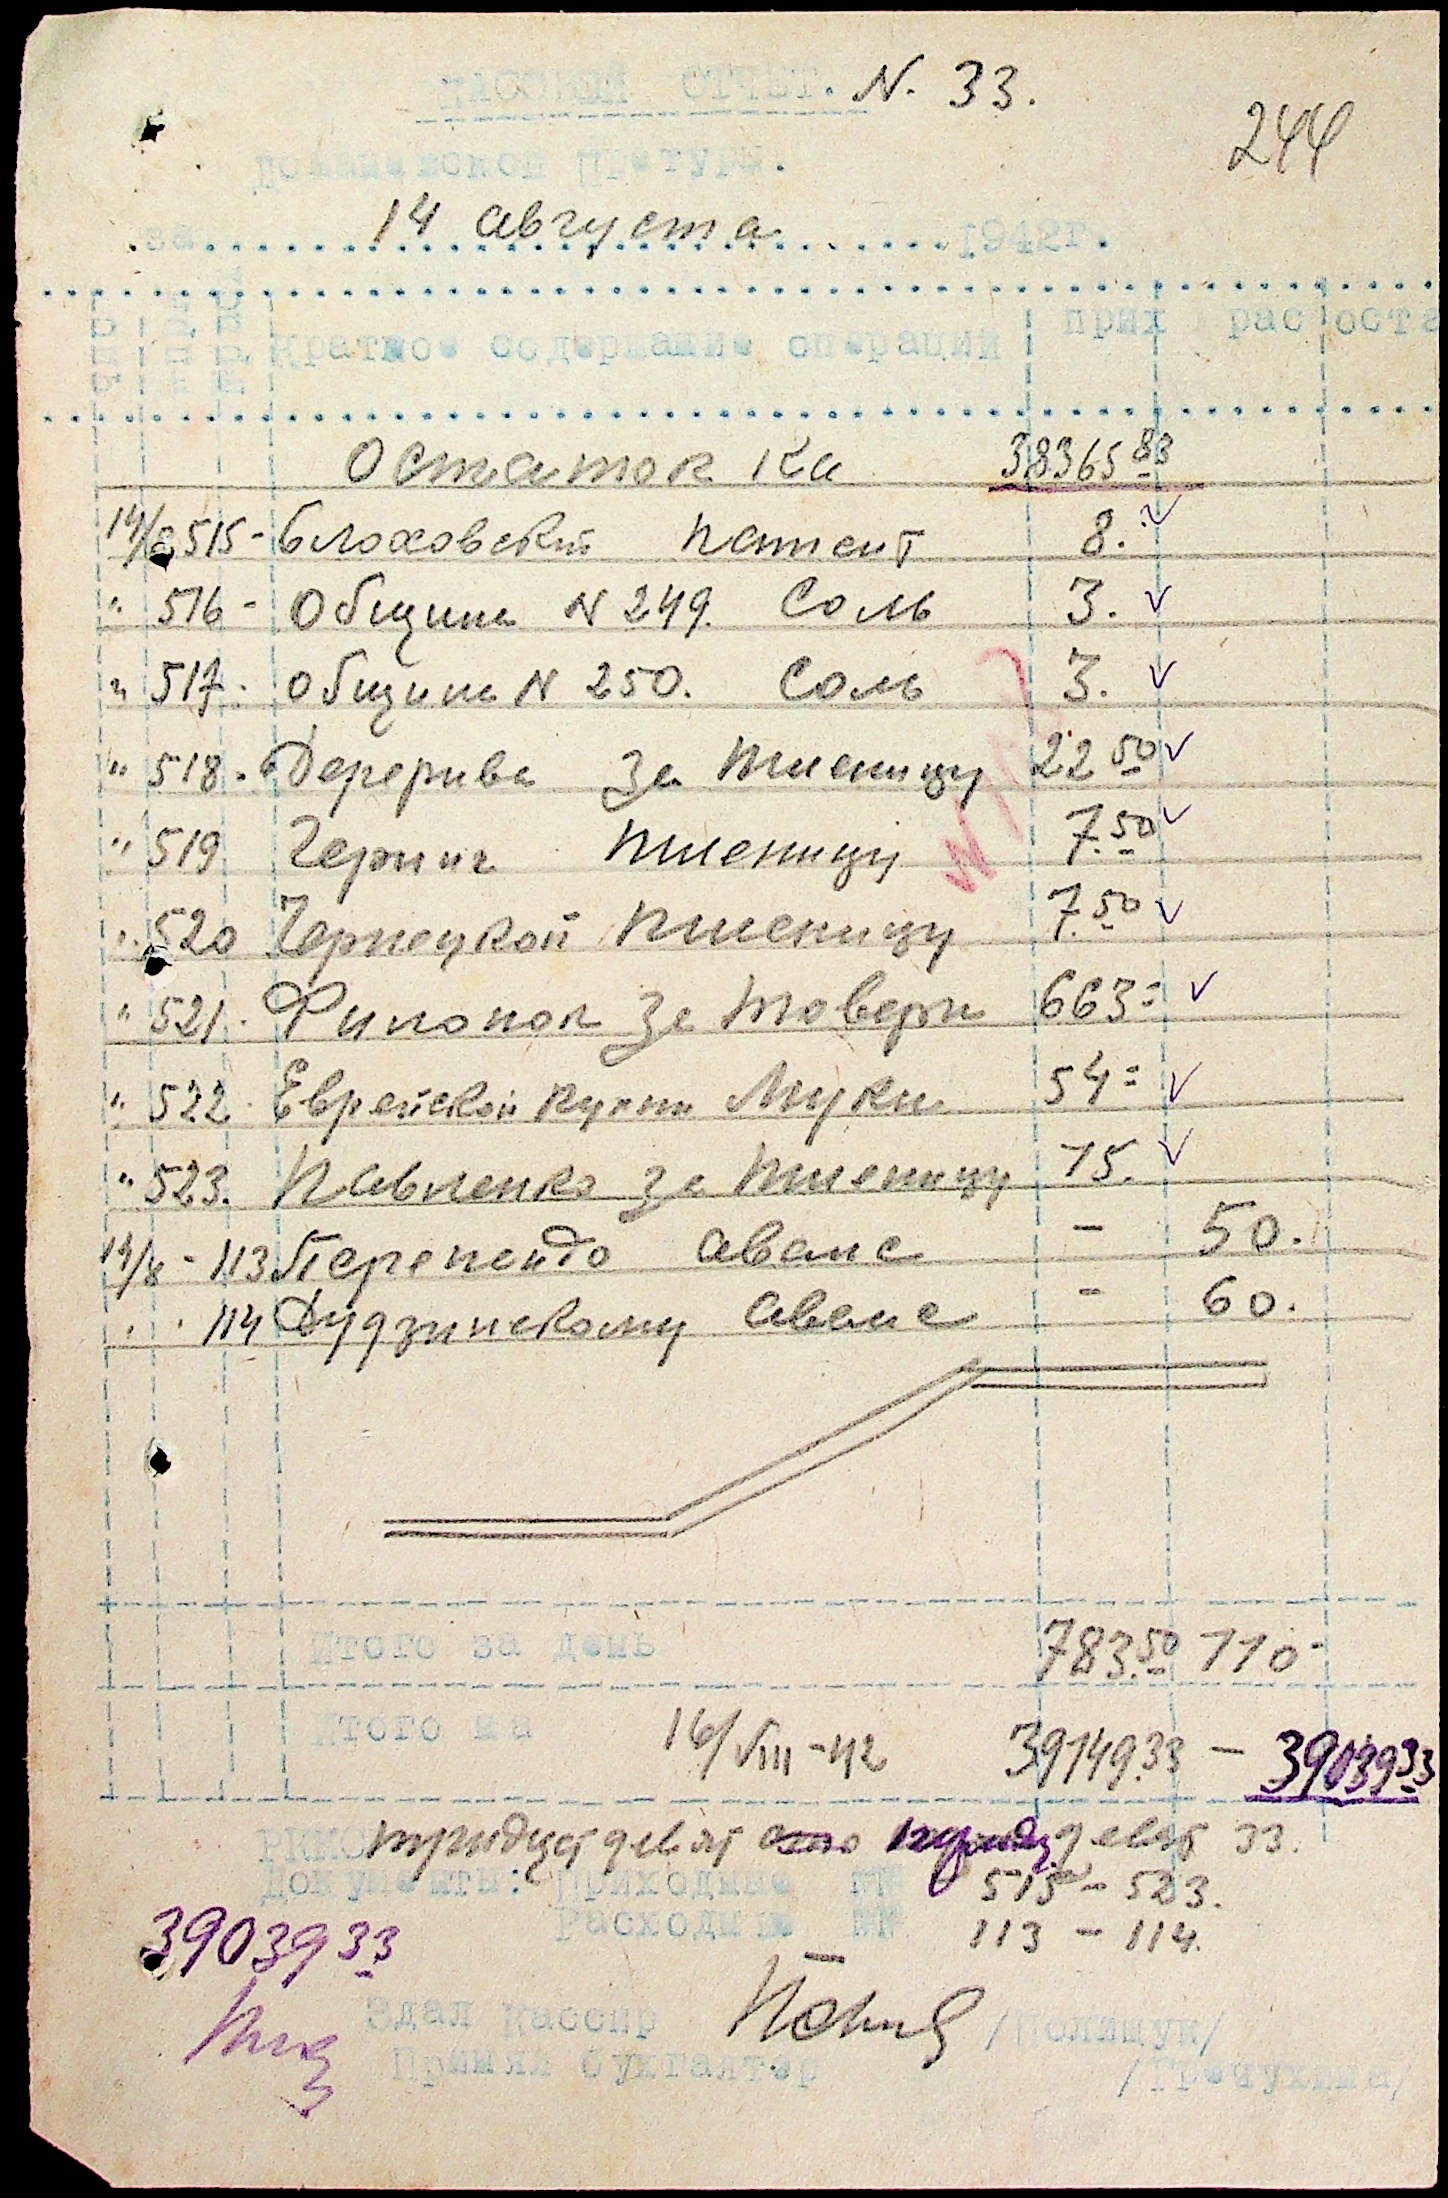 КАССОВЫЙ ОТЧЕТ. N. 33.
244
Доманевской Претуры.
за 14 августа 1942г.
Краткое содержание операций прих рас оста
Остаток на 38365 83
14/8 515 - Блоховский патент 8.
" 516 - Община N 249. Соль 3.
" 517. Община N 250. Соль 3.
" 518. за пшеницу 22 50
" 519 пшеницу 7.50
" 520 Чернецкой пшеницу 7.50
" 521. за товары 663=
" 522. Еврейской кухни Мука 54=
" 523. Павленко за пшеницу 15.
14/8 - 113 аванс - 50.
" 114 Дудзинскому аванс - 60.
Итого за день 783.50 110-
Итого на 16/VIII-42 39149.33 - 39039 33
тридцат девят девят 33.
Документы: Приходные №№ 515 - 523.
Расходные №№ 113 - 114.
39039 33
Здал Кассир /Полищук/
Принял бухгалтер /Гречухина/